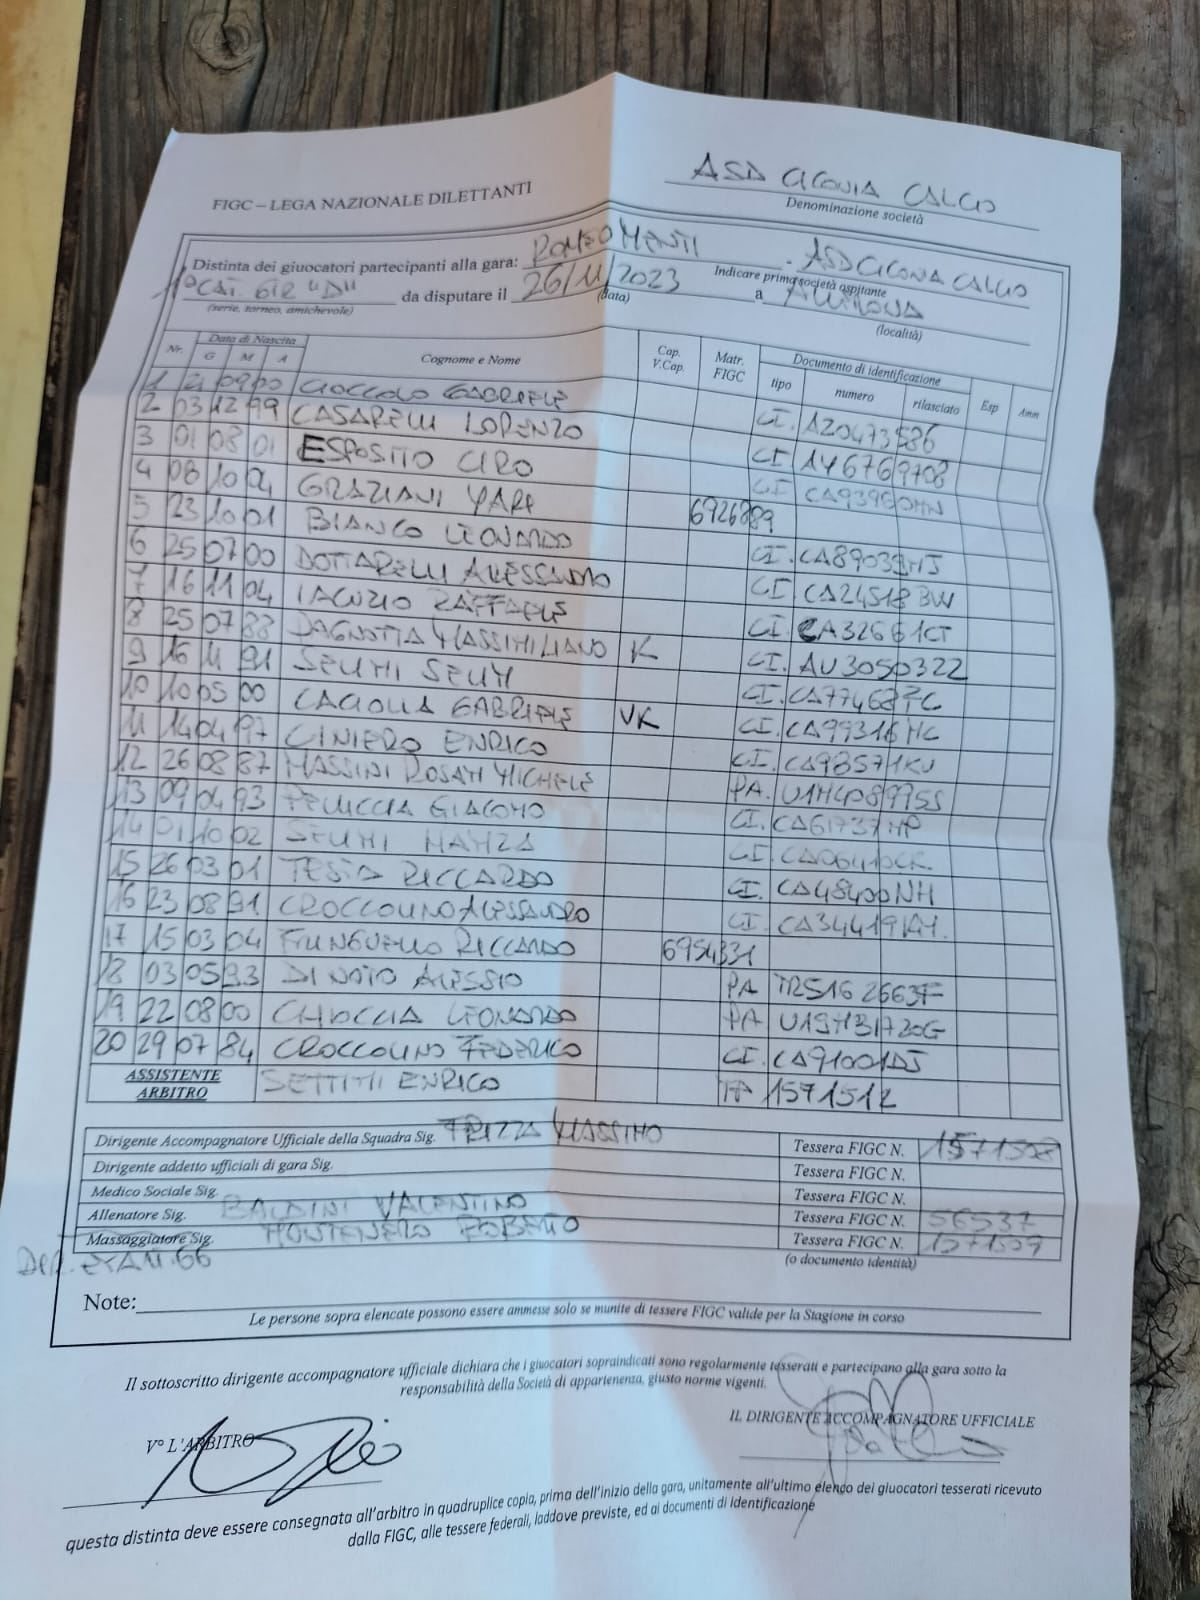 ASD CICONIA CALCIO
FIGC – LEGA NAZIONALE DILETTANTI
Denominazione società
Distinta dei giuocatori partecipanti alla gara: ROMEO MENTI - ASD CICONIA CALCIO
Indicare prima società ospitante
1° CAT. GIR "D" da disputare il 26/11/2023 a
(serie, torneo, amichevole) (data) (località)
Nr. Data di Nascita G M A Cognome e Nome Cap. V.Cap. Matr. FIGC Documento di identificazione tipo numero rilasciato Esp Amm
1 09 00 CIOCCOLO GABRIELE CI. AZ0473586
2 03 12 99 CASARELLI LORENZO CI AY6769708
3 01 08 01 ESPOSITO CIRO CI
4 08 10 04 GRAZIANI YARI 6926889
5 23 10 01 BIANCO LEONARDO CI. CA89039HJ
6 25 07 00 DOTTARELLI ALESSANDRO CI CA24518BW
7 16 11 04 IACUZIO RAFFAELE CI. CA32661CT
8 25 07 88 DAGNOTTA MASSIMILIANO K CI. AU3050322
9 16 11 91 SELIMI SELIM CI.
10 10 05 00 CACIOLLA GABRIELE VK CI. CA99316HC
11 14 04 97 CINIERO ENRICO CI. CA98571KU
12 26 08 87 MASSINI ROSATI MICHELE PA.
13 09 04 93 PELICCIA GIACOMO CI. CA61737HP
14 01 10 02 SELIMI HAMZA CI.
15 26 03 01 TESTA RICCARDO CI. CA48400NH
16 23 08 91 CROCCOLINO ALESSANDRO CI.
17 15 03 04 FRINGUELLO RICCARDO 6954331
18 03 05 93 DI NOTO ALESSIO PA TR5162663F
19 22 08 00 CHIOCCIA LEONARDO PA
20 29 07 84 CROCCOLINO FEDERICO CI. CA91001DJ
ASSISTENTE ARBITRO SETTIMI ENRICO 157151
Dirigente Accompagnatore Ufficiale della Squadra Sig. FRIZZA MASSIMO Tessera FIGC N. 1571508
Dirigente addetto ufficiali di gara Sig. Tessera FIGC N.
Medico Sociale Sig. Tessera FIGC N.
Allenatore Sig. BALDINI VALENTINO Tessera FIGC N. 56537
Massaggiatore Sig. MONTENERO ROBERTO Tessera FIGC N. 1571509
(o documento identità)
Note:
Le persone sopra elencate possono essere ammesse solo se munite di tessere FIGC valide per la Stagione in corso
Il sottoscritto dirigente accompagnatore ufficiale dichiara che i giuocatori sopraindicati sono regolarmente tesserati e partecipano alla gara sotto la
responsabilità della Società di appartenenza, giusto norme vigenti.
V° L'ARBITRO IL DIRIGENTE ACCOMPAGNATORE UFFICIALE
questa distinta deve essere consegnata all'arbitro in quadruplice copia, prima dell'inizio della gara, unitamente all'ultimo elenco dei giuocatori tesserati ricevuto
dalla FIGC, alle tessere federali, laddove previste, ed ai documenti di identificazione